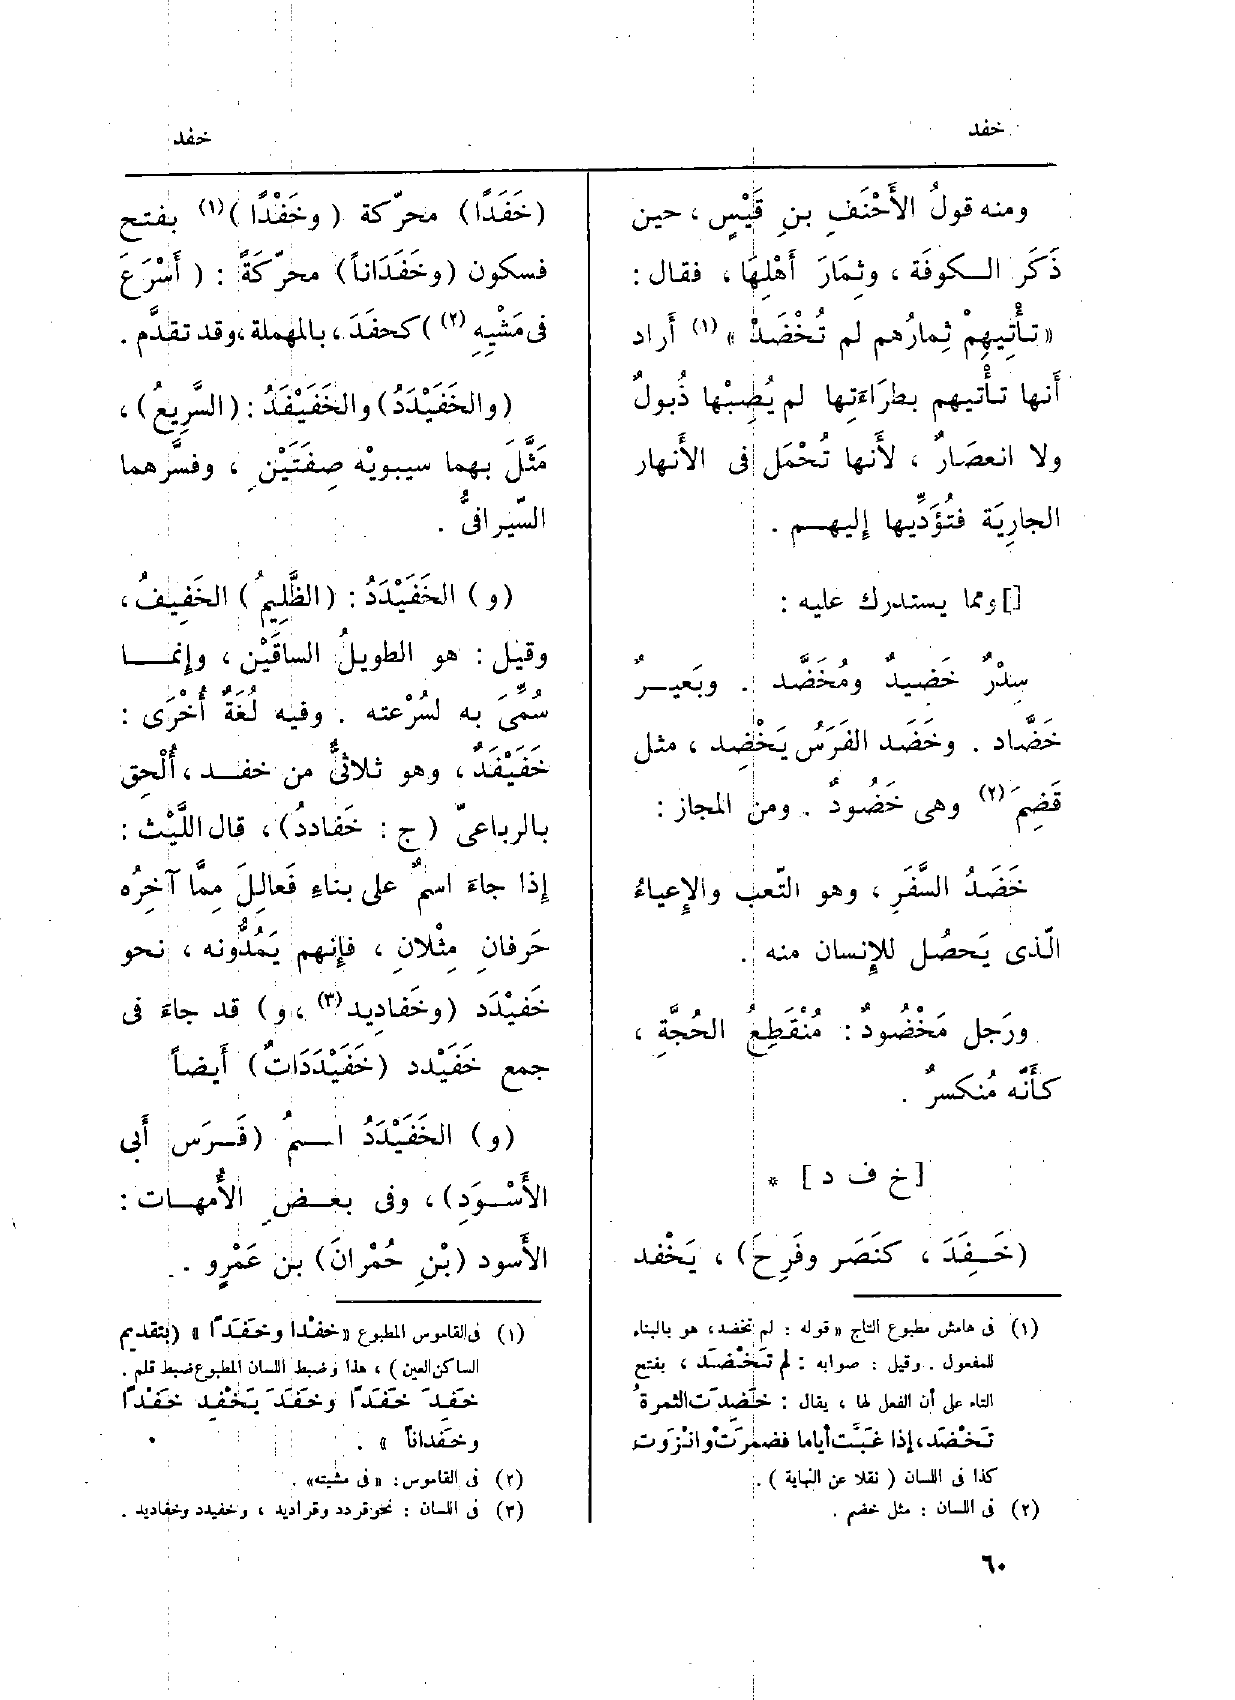 خفد
خفد
ومنه قولُ الأَحْنَفِ بنِ قَيْسٍ ، حين
ذَكَر الكوفَة ، وثِمَارَ أَهْلِهَا ، فقال :
« تَأْتِيهِمْ ثِمارُهم لم تُخْضَدْ » (١) أَراد
أَنها تأْتيهم بطَرَاءَتِها لم يُصِبْها ذُبولٌ
ولا انعصَارٌ ، لأَنها تُحْمَل فى الأَنهار
الجارِيَة فتُؤَدِّيها إِليهم .
[] ومما يستدرك عليه :
سِدْرٌ خَضِيدٌ ومُخَضَّد . وبَعيرٌ
خَضَّاد . وخَضَد الفَرَسُ يَخْضِد ، مثل
قَضِمَ (٢) وهى خَضُودٌ . ومن المجاز :
خَضَدُ السَّفَرِ ، وهو التّعب والإِعياءُ
الّذى يَحصُل للإِنسان منه .
ورَجل مَخْضُودٌ : مُنْقَطِعُ الحُجَّةِ ،
كأَنَّه مُنكسرٌ .
[خ ف د] *
(خَفِدَ ، كنَصَر وفَرِحَ) ، يَخْفد
(١) فى هامش مطبوع التاج « قوله : لم تخضد، هو بالبناء
للمفعول . وقيل : صوابه : لم تَخْضَد ، بفتح
التاء على أن الفعل لها ، يقال : خَضِدَت الثمرةُ
تَخْضَد، إذا غَبَّت أياما فضمرت وانزوت
كذا فى اللسان ( نقلا عن النهاية ) .
(٢) فى اللسان : مثل خضم .
٦٠
(خَفَدًا) محرّكة (وخَفْدًا) (١) بفتح
فسكون (وخَفَدَاناً) محرّكَةً : (أَسْرَعَ
فى مَشْيِهِ (٢) ) كحفَدَ ، بالمهملة ، وقد تقدَّم .
(والخَفَيْدَدُ) والخَفَيْفَدُ : (السَّرِيعُ) ،
مَثَّلَ بهما سيبويْه صِفَتَيْنِ ، وفسَّرهما
السّيرافىُّ .
(و) الخَفَيْدَدُ : (الظَّلِيمُ) الخَفِيفُ ،
وقيل : هو الطويلُ الساقَيْن ، وإِنما
سُمِّىَ به لسُرْعته . وفيه لُغَةٌ أُخْرَى :
خَفَيْفَدٌ ، وهو ثلاثىٌّ من خفد ، أُلْحِق
بالرباعىّ (ج : خَفادِدُ) ، قال اللَّيْث :
إِذا جاءَ اسمٌ على بناءِ فَعالِلَ مِمَّا آخِرُه
حَرفانِ مِثْلانِ ، فإِنهم يَمُدُّونه ، نحو
خَفَيْدَد (وخَفادِيد (٣) ، و) قد جاءَ فى
جمع خَفَيْدد (خَفَيْدَدَاتٌ) أَيضاً
(و) الخَفَيْدَدُ اسمُ (فَرَس أَبى
الأَسْوَدِ) ، وفى بعضِ الأُمهات :
الأَسود (بْنِ حُمْرانَ) بن عَمْرٍو .
(١) فى القاموس المطبوع « خَفْدا وخَفَدًا » (بتقديم
الساكن العين) ، هذا وضبط اللسان المطبوع ضبط قلم .
خَفِدَ خَفَدًا وخَفَدَ يَخْفِد خَفْدًا
وخَفَداناً » .
(٢) فى القاموس : « فى مشيته» .
(٣) فى اللسان : نحو قردد وقراديد ، وخفيدد وخفاديد .